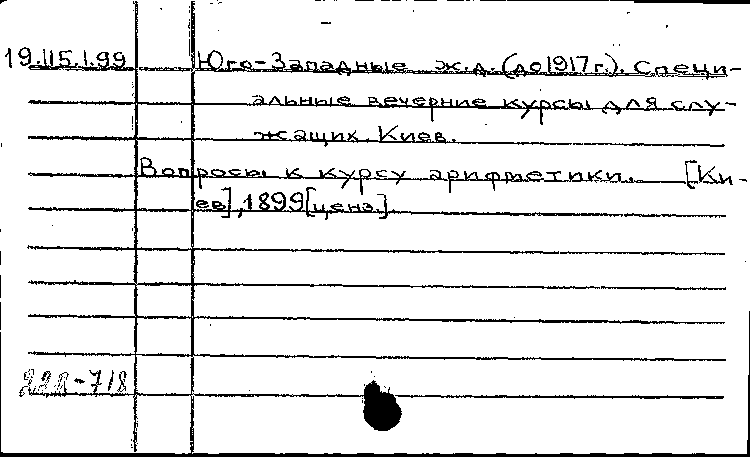 19.115.1.99 Юго-Западные ж.д. (до 1917 г.). Специ-
альные вечерние курсы для слу-
жащих. Киев.
Вопросы к курсу арифметики. [Ки-
ев], 1899 [ценз.].
22R-718